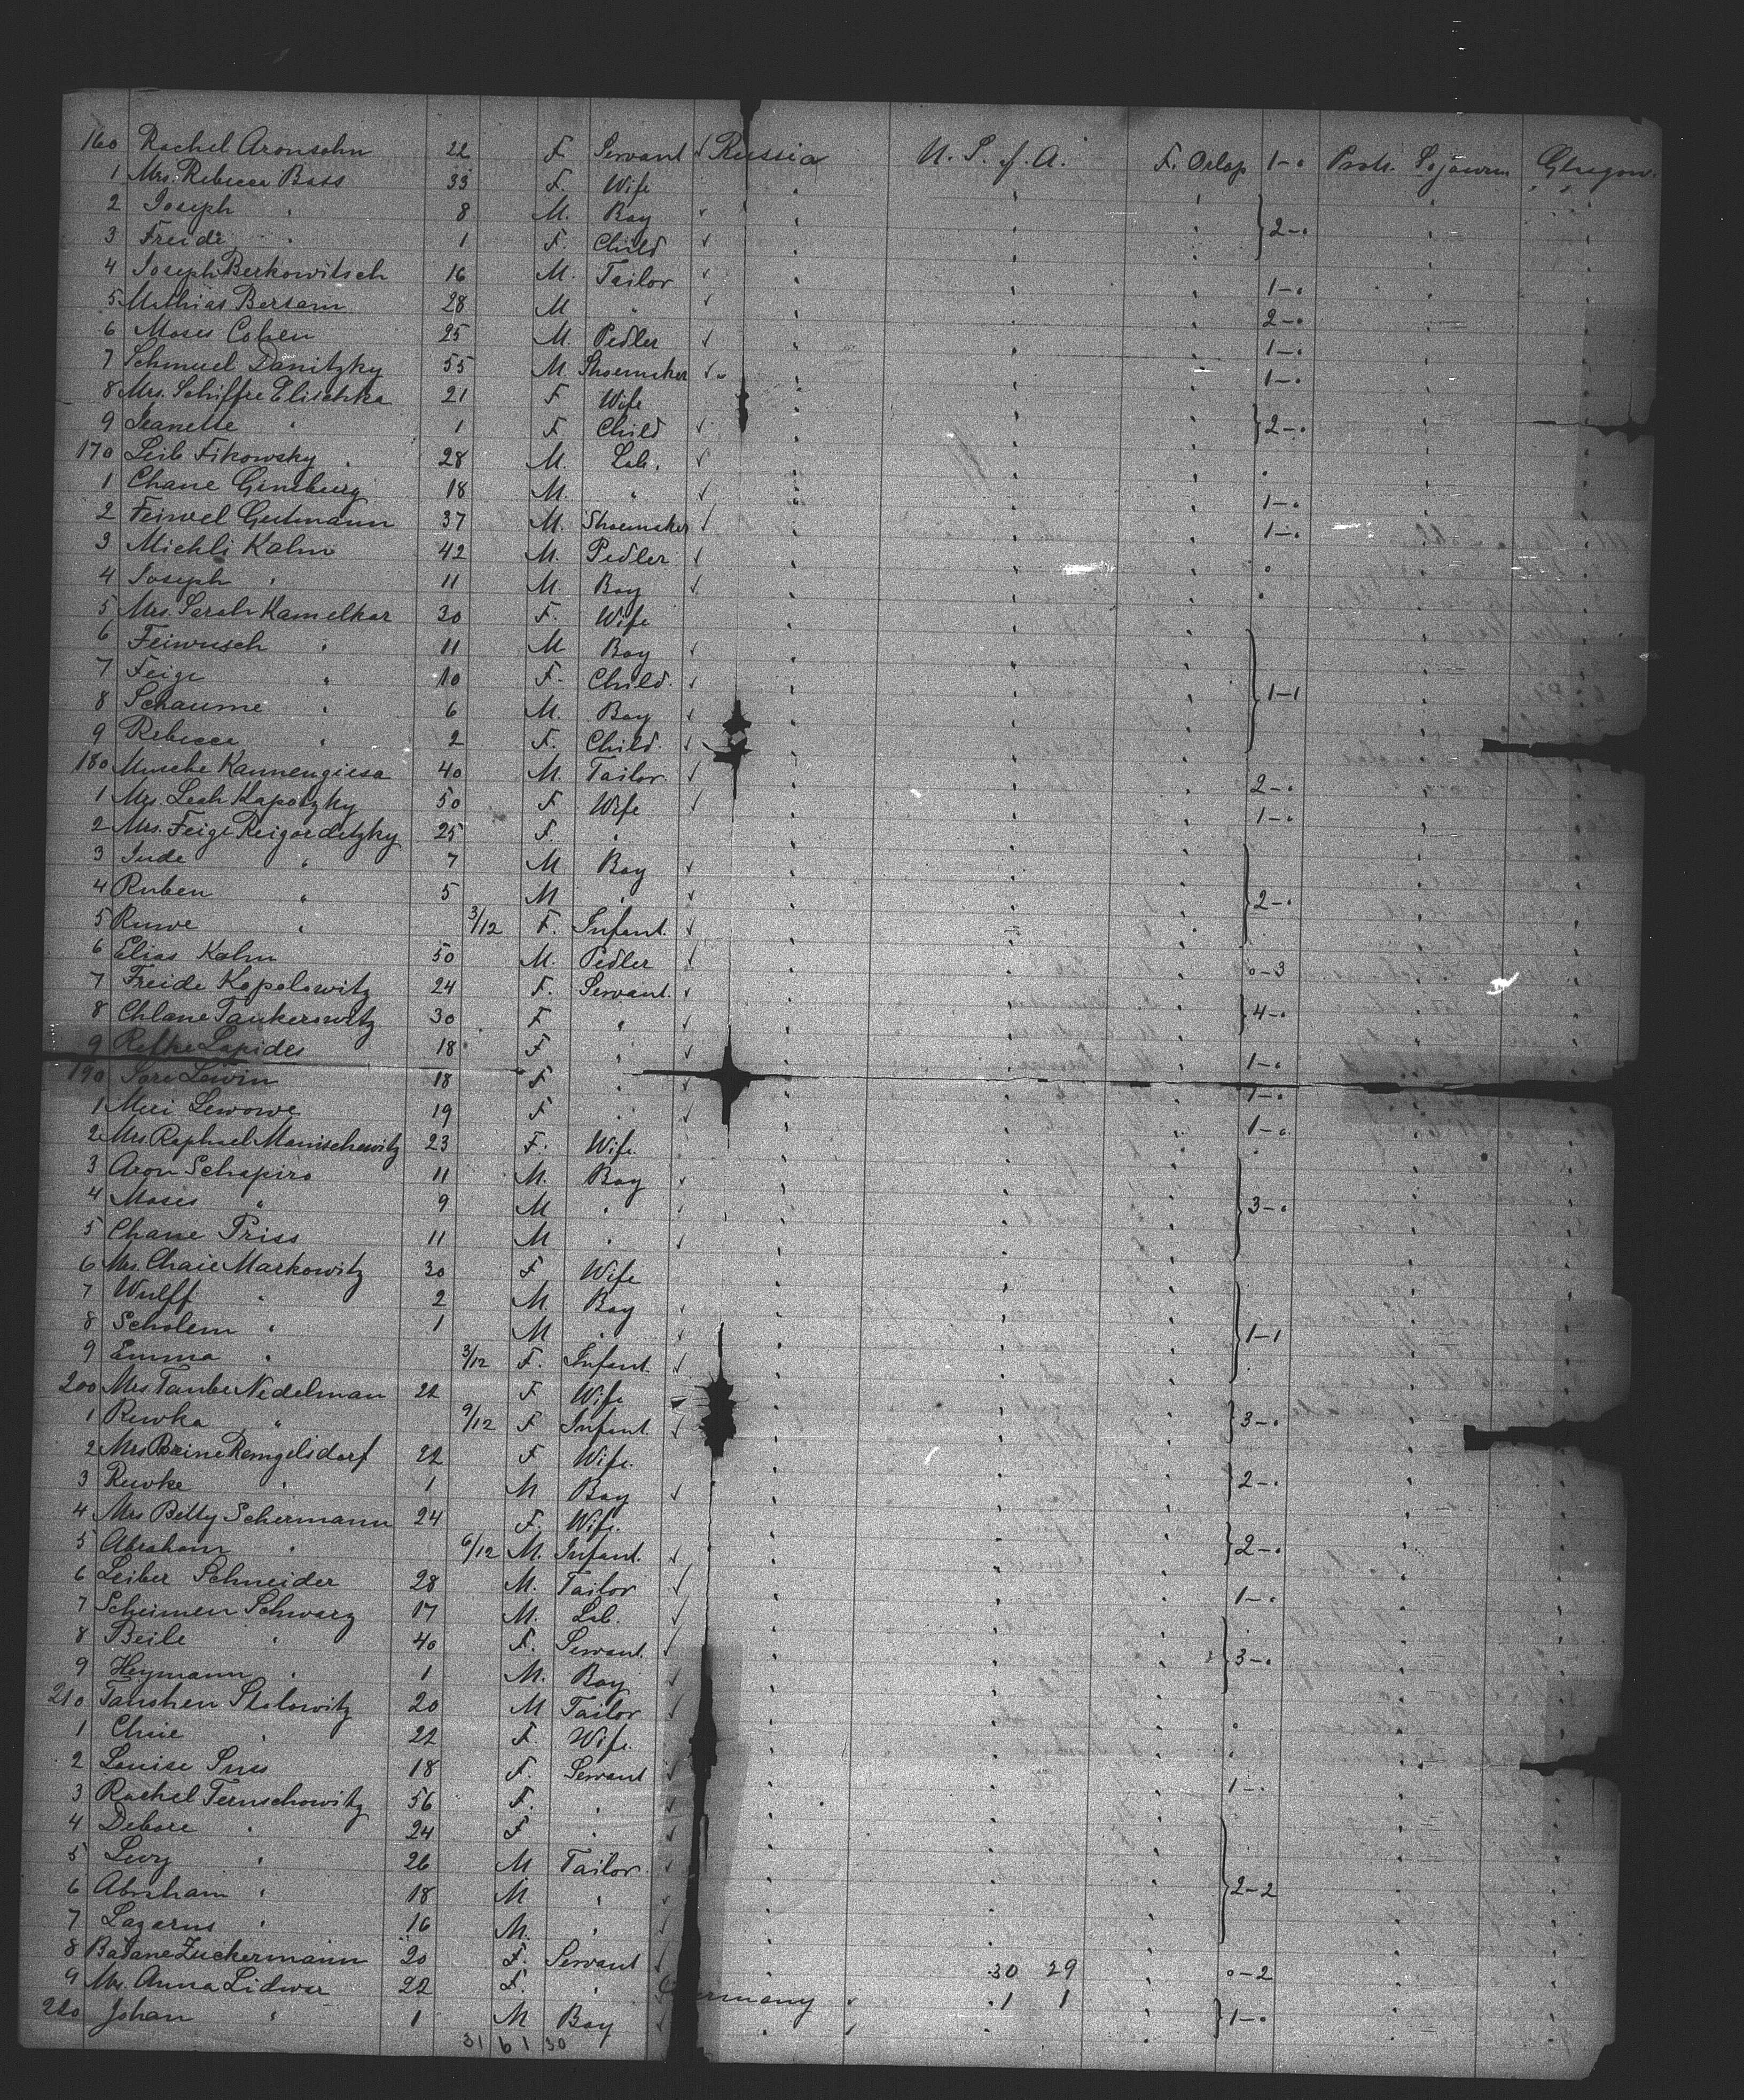 160 Rachel Aronsohn 22 F. Servant Russia U. S. of A. F. Orlop 1-0 Protr. Sojourn Glasgow.
1 Mrs. Rebecca Bass 33 F. Wife "
2 Joseph " 8 M. Boy "
3 Freide " 1 F. Child " 2-0
4 Joseph Berkowitsch 16 M. Tailor " 1-0
5 Mathias Bersam 28 M " " 2-0
6 Moses Cohen 25 M. Pedler " 1-0
7 Schmuel Danitzky 55 M. Shoemaker " 1-0
8 Mrs. Schiffre Elischka 21 F Wife "
9 Jeanette " 1 F Child " 2-0
170 Leib Fikowsky 28 M. Lab. "
1 Chane Ginsburg 18 M. " " 1-0
2 Feiwel Gutmann 37 M. Shoemaker " 1-0
3 Michli Kahn 42 M. Pedler "
4 Joseph " 11 M. Boy "
5 Mrs. Sarah Kamelkar 30 F. Wife "
6 Feiwusch " 11 M Boy "
7 Feige " 10 F. Child. " 1-1
8 Schaume " 6 M. Boy "
9 Rebecca " 2 F. Child. "
180 Musche Kannengiesa 40 M. Tailor. " 2-0
1 Mrs. Leah Kapotzky 50 F Wife " 1-0
2 Mrs. Feige Reigordetzky 25 F. " "
3 Jude " 7 M Boy "
4 Ruben " 5 M " " 2-0
5 Ruwe " 3/12 F. Infant. "
6 Elias Kahn 50 M. Pedler " 0-3
7 Freide Kopelowitz 24 F. Servant. " 4-0
8 Chlane Tankerowitz 30 F " "
9 Refke Lapides 18 F " " 1-0
190 Sore Lewin 18 F " " 1-0
1 Meri Lewowe 19 F " " 1-0
2 Mrs. Raphael Manischewitz 23 F. Wife "
3 Aron Schapiro 11 M. Boy "
4 Moses " 9 M " " 3-0
5 Chane Priss 11 M " "
6 Mrs. Chaie Markowitz 30 F Wife "
7 Wulff " 2 M. Boy "
8 Scholem " 1 M " " 1-1
9 Emma " 3/12 F. Infant. "
200 Mrs. Taube Nedelman 22 F Wife "
1 Rewka " 9/12 F Infant " 3-0
2 Mrs Breine Remgelsdorf 22 F Wife. "
3 Rewke " 1 M Boy " 2-0
4 Mrs Betty Schermann 24 F. Wife. "
5 Abraham " 6/12 M. Infant. " 2-0
6 Leiber Schneider 28 M. Tailor " 1-0
7 Scheimen Schwarz 17 M. Lab. "
8 Beile " 40 F. Servant " 3-0
9 Heymann " 1 M. Boy "
210 Tanshen Stolowitz 20 M Tailor "
1 Chaie " 22 F. Wife. "
2 Louise Suss 18 F. Servant " 1-0
3 Rachel Ternschowitz 56 F. " "
4 Debore " 24 F " "
5 Levy " 26 M Tailor. "
6 Abraham " 18 M " " 2-2
7 Lazarus " 16 M. " "
8 Badane Zuckermann 20 F. Servant " 30 29 0-2
9 Mrs. Anna Lidwar 22 F. " Germany " 1 1
220 Johan " 1 M Boy " 1-0
31 6 1 30